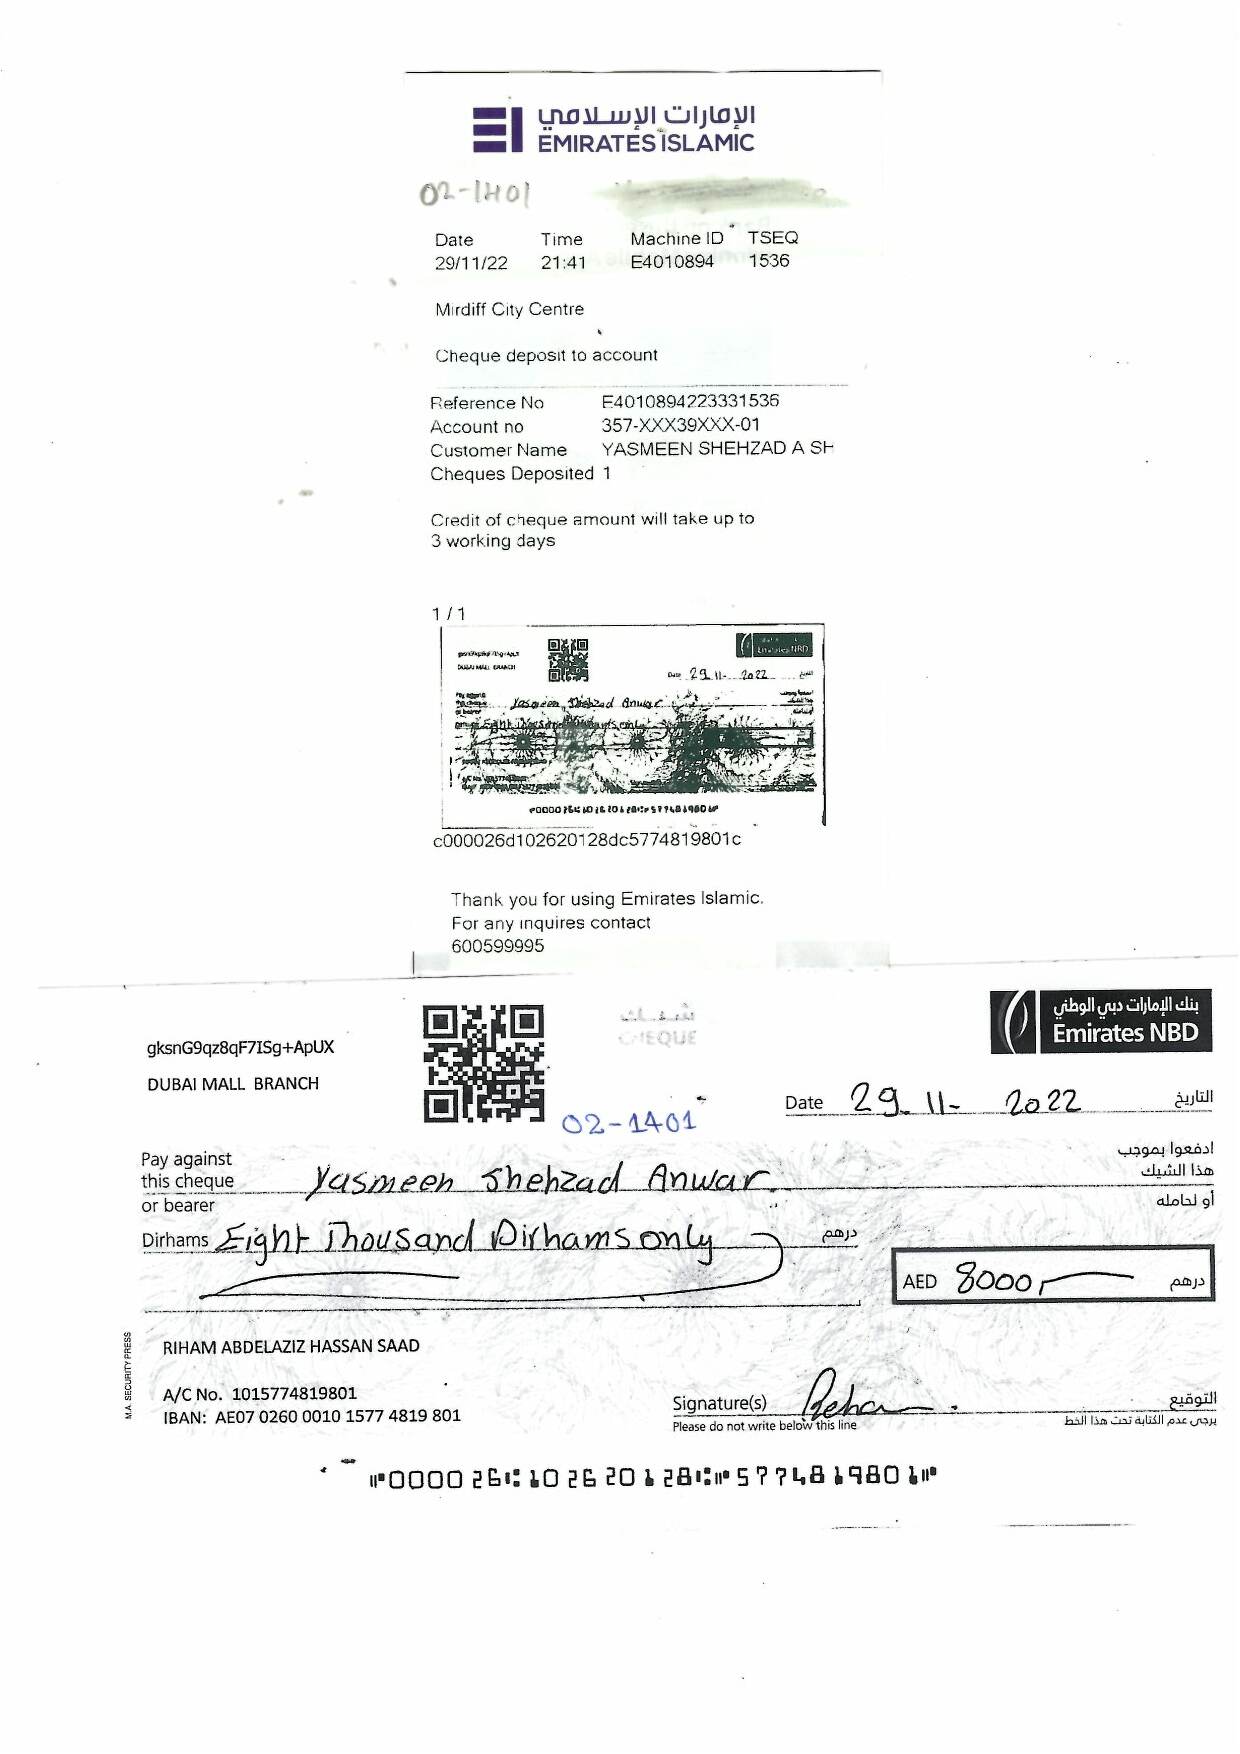 الإمارات الإسلامي
EMIRATES ISLAMIC
02-1401
Date Time Machine ID TSEQ
29/11/22 21:41 E4010894 1536
Mirdiff City Centre
Cheque deposit to account
Reference No E4010894223331536
Account no 357-XXX39XXX-01
Customer Name YASMEEN SHEHZAD A SH
Cheques Deposited 1
Credit of cheque amount will take up to
3 working days
1 / 1
Emirates NBD
DUBAI MALL BRANCH
Date 29 11- 2022
Yasmeen Shehzad Anwar
Eight Thousand Dirhams only
c000026d102620128dc5774819801c
Thank you for using Emirates Islamic.
For any inquires contact
600599995
شيك
CHEQUE
بنك الإمارات دبي الوطني
Emirates NBD
gksnG9qz8qF7ISg+ApUX
DUBAI MALL BRANCH
02-1401
Date 29 11- 2022 التاريخ
Pay against this cheque or bearer Yasmeen Shehzad Anwar ادفعوا بموجب هذا الشيك أو لحامله
Dirhams Eight Thousand Dirhams only درهم
AED 8000/- درهم
M.A. SECURITY PRESS
RIHAM ABDELAZIZ HASSAN SAAD
A/C No. 1015774819801
IBAN: AE07 0260 0010 1577 4819 801
Signature(s) Reham التوقيع
Please do not write below this line يرجى عدم الكتابة تحت هذا الخط
⑈000026⑆102620128⑆⑈5774819801⑈